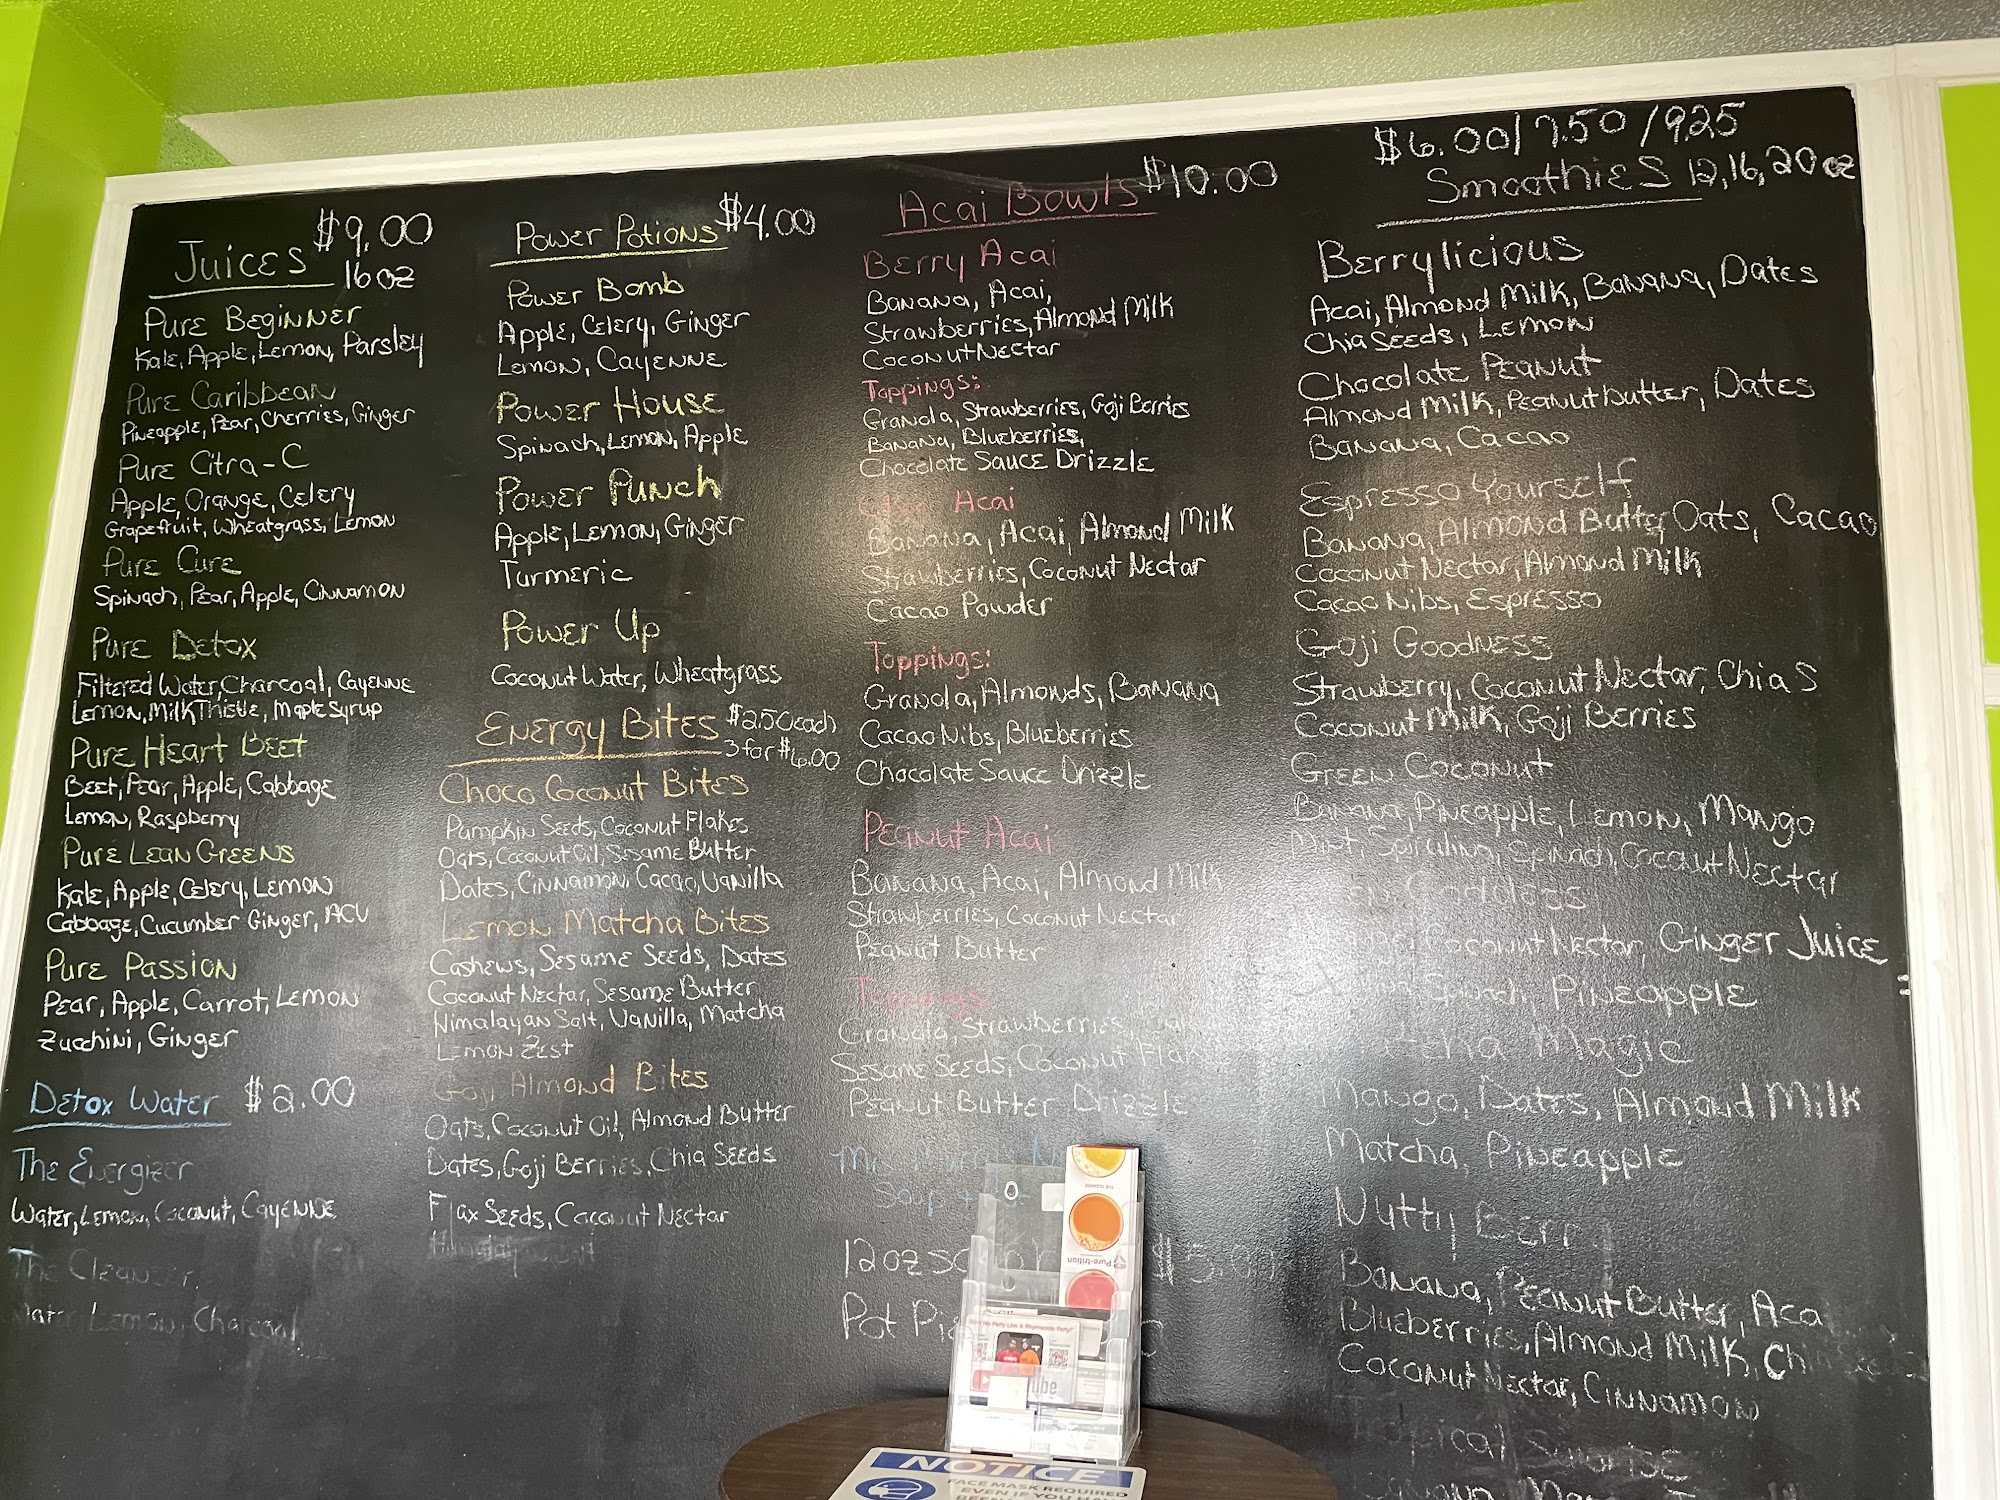 Juices $9.00
16 oz
Pure Beginner
Kale, Apple, Lemon, Parsley
Pure Caribbean
Pineapple, Pear, Cherries, Ginger
Pure Citra-C
Apple, Orange, Celery
Grapefruit, Wheatgrass, Lemon
Pure Cure
Spinach, Pear, Apple, Cinnamon
Pure Detox
Filtered Water, Charcoal, Cayenne
Lemon, Milk Thistle, Maple Syrup
Pure Heart Beet
Beet, Pear, Apple, Cabbage
Lemon, Raspberry
Pure Lean Greens
Kale, Apple, Celery, Lemon
Cabbage, Cucumber Ginger, ACV
Pure Passion
Pear, Apple, Carrot, Lemon
Zucchini, Ginger
Detox Water $2.00
The Energizer
Water, Lemon, Coconut, Cayenne
The Cleanser
Water, Lemon, Charcoal
Power Potions $4.00
Power Bomb
Apple, Celery, Ginger
Lemon, Cayenne
Power House
Spinach, Lemon, Apple
Power Punch
Apple, Lemon, Ginger
Turmeric
Power Up
Coconut Water, Wheatgrass
Energy Bites $2.50 each
3 for $6.00
Choco Coconut Bites
Pumpkin Seeds, Coconut Flakes
Oats, Coconut Oil, Sesame Butter
Dates, Cinnamon, Cacao, Vanilla
Lemon Matcha Bites
Cashews, Sesame Seeds, Dates
Coconut Nectar, Sesame Butter
Himalayan Salt, Vanilla, Matcha
Lemon Zest
Goji Almond Bites
Oats, Coconut Oil, Almond Butter
Dates, Goji Berries, Chia Seeds
Flax Seeds, Coconut Nectar
Acai Bowls $10.00
Berry Acai
Banana, Acai,
Strawberries, Almond Milk
Coconut Nectar
Toppings:
Granola, Strawberries, Goji Berries
Banana, Blueberries,
Chocolate Sauce Drizzle
Acai
Banana, Acai, Almond Milk
Strawberries, Coconut Nectar
Cacao Powder
Toppings:
Granola, Almonds, Banana
Cacao Nibs, Blueberries
Chocolate Sauce Drizzle
Peanut Acai
Banana, Acai, Almond Milk
Strawberries, Coconut Nectar
Peanut Butter
Toppings
Granola, Strawberries,
Sesame Seeds, Coconut
Peanut Butter Drizzle
Soup
12oz $5.00
Pot
$6.00/7.50/9.25
Smoothies 12, 16, 20 oz
Berrylicious
Acai, Almond Milk, Banana, Dates
Chia Seeds, Lemon
Chocolate Peanut
Almond Milk, Peanut butter, Dates
Banana, Cacao
Espresso Yourself
Banana, Almond Butter Oats, Cacao
Coconut Nectar, Almond Milk
Cacao Nibs, Espresso
Goji Goodness
Strawberry, Coconut Nectar, Chia S
Coconut Milk, Goji Berries
Green Coconut
Banana, Pineapple, Lemon, Mango
Mint, Spirulina, Spinach, Coconut Nectar
Coconut Nectar, Ginger Juice
Spinach, Pineapple
Magic
Mango, Dates, Almond Milk
Matcha, Pineapple
Nutty Berry
Banana, Peanut Butter, Acai
Blueberries, Almond Milk,
Coconut Nectar, Cinnamon
Tropical Sunrise
Pure-trition
NOTICE
FACE MASK REQUIRED
EVEN IF YOU HAVE